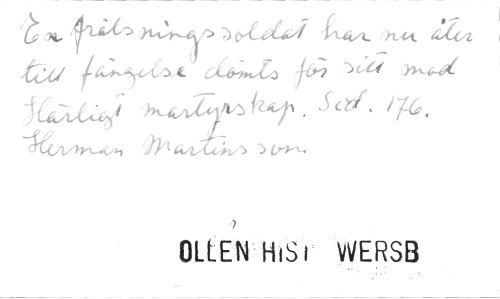 En frälsningssoldat har nu åter
till fängelse dömts för sitt mod
Härligt martyrskap. Sid. 176.
Herman Martinsson.
OLLÉN HIST WERSB